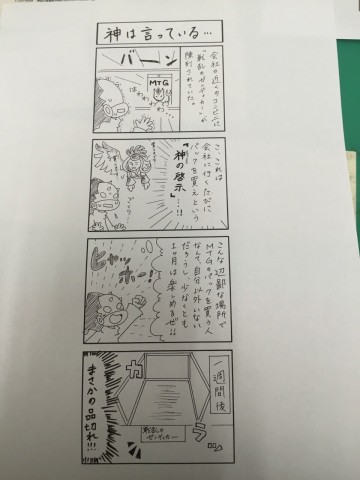 神は言っている…
会社の近くのコンビニに
「戦乱のゼンディカー」が
陳列されていた。
バーン
MTG
はわわわわ…
こ、これは
会社に行くたびに
パックを買えという
「神の啓示」…!!
ごくり…
こんな辺鄙な場所で
MTGのパックを買う人
なんて、自分以外いない
だろうし、少なくとも
1ヶ月は楽しめるぜ!!
ヒャッホー!
一週間後
ガラーン
戦乱の
ゼンディカー
まさかの品切れ!!!